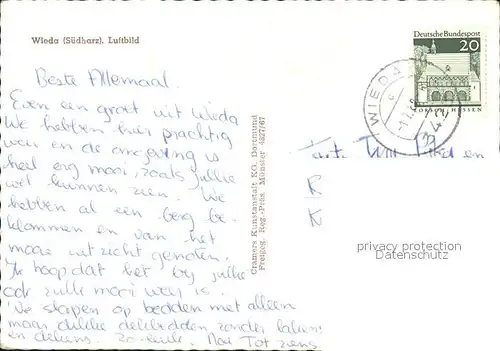 Wieda (Südharz), Luftbild
Deutsche Bundespost
20
LORSCH/HESSEN
WIEDA
Beste Allemaal.
Even een groet uit Wieda
We hebben hier prachtig
weer en de omgeving is
heel erg mooi, zoals jullie
wel kunnen zien. We
hebben al een berg be-
klommen en van het
mooie uitzicht genoten.
Ik hoop dat het bij jullie
ook zulk mooi weer is.
We slapen op bedden met alleen
maar dikke dekbedden zonder lakens
en dekens. Nou Tot ziens
Cramers Kunstanstalt KG, Dortmund
Freigeg. Reg.-Präs. Münster 4827/67
Fam.
en
K
K
privacy protection
Datenschutz